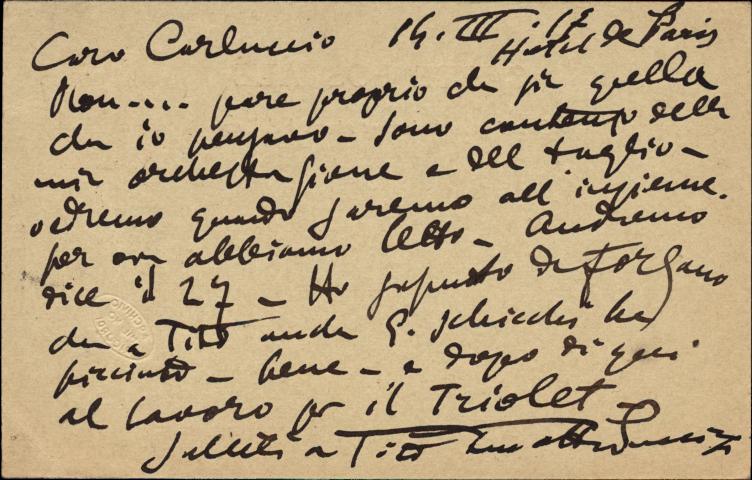 Caro Carluccio 14. III. 17
Hotel de Paris
Non.... pare proprio che sia quella
che io pensavo – Sono contento della
mia orchestrazione e del taglio –
vedremo quando saremo all'insieme.
per ora abbiamo letto – Andremo
dice il 27 – Ho saputo da Forzano
che a Tito anche G. Schicchi ha
piaciuto – bene – e dopo di qui
al lavoro per il Triolet –
Saluti a Tito